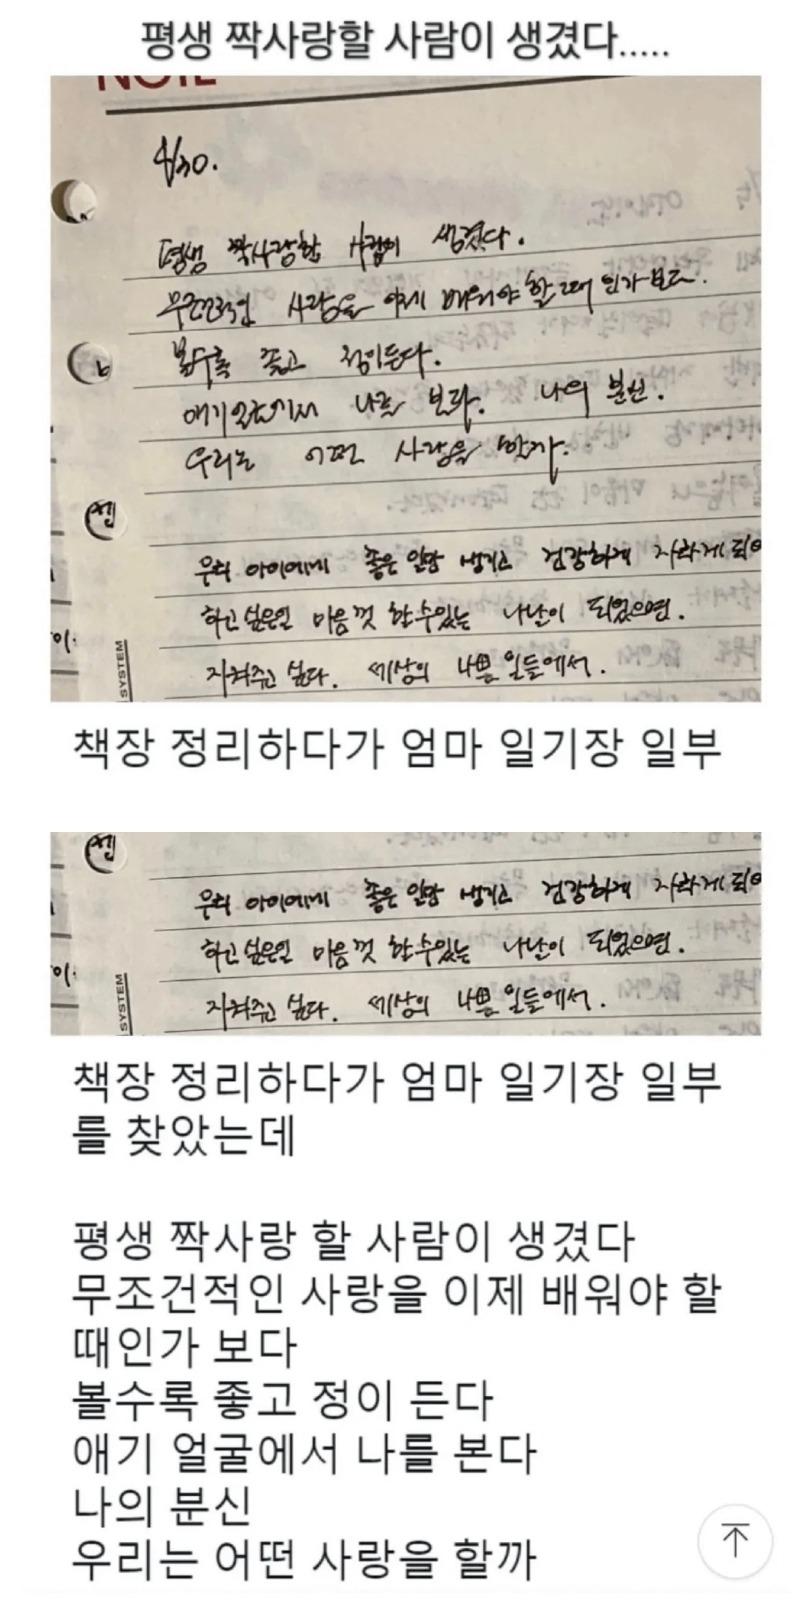 평생 짝사랑할 사람이 생겼다.....
NOTE
4/30.
평생 짝사랑할 사람이 생겼다.
무조건적인 사랑을 이제 배워야 할 때 인가보다.
볼수록 좋고 정이든다.
애기 얼굴에서 나를 본다. 나의 분신.
우리는 어떤 사랑을 할까.
우리 아이에게 좋은 일만 생기고 건강하게 자라게 되어
하고 싶은일 마음껏 할 수 있는 나날이 되었으면.
지켜주고 싶다. 세상의 나쁜 일들에서.
SYSTEM
책장 정리하다가 엄마 일기장 일부
우리 아이에게 좋은 일만 생기고 건강하게 자라게 되어
하고 싶은일 마음껏 할 수 있는 나날이 되었으면.
지켜주고 싶다. 세상의 나쁜 일들에서.
SYSTEM
책장 정리하다가 엄마 일기장 일부
를 찾았는데
평생 짝사랑 할 사람이 생겼다
무조건적인 사랑을 이제 배워야 할
때인가 보다
볼수록 좋고 정이 든다
애기 얼굴에서 나를 본다
나의 분신
우리는 어떤 사랑을 할까